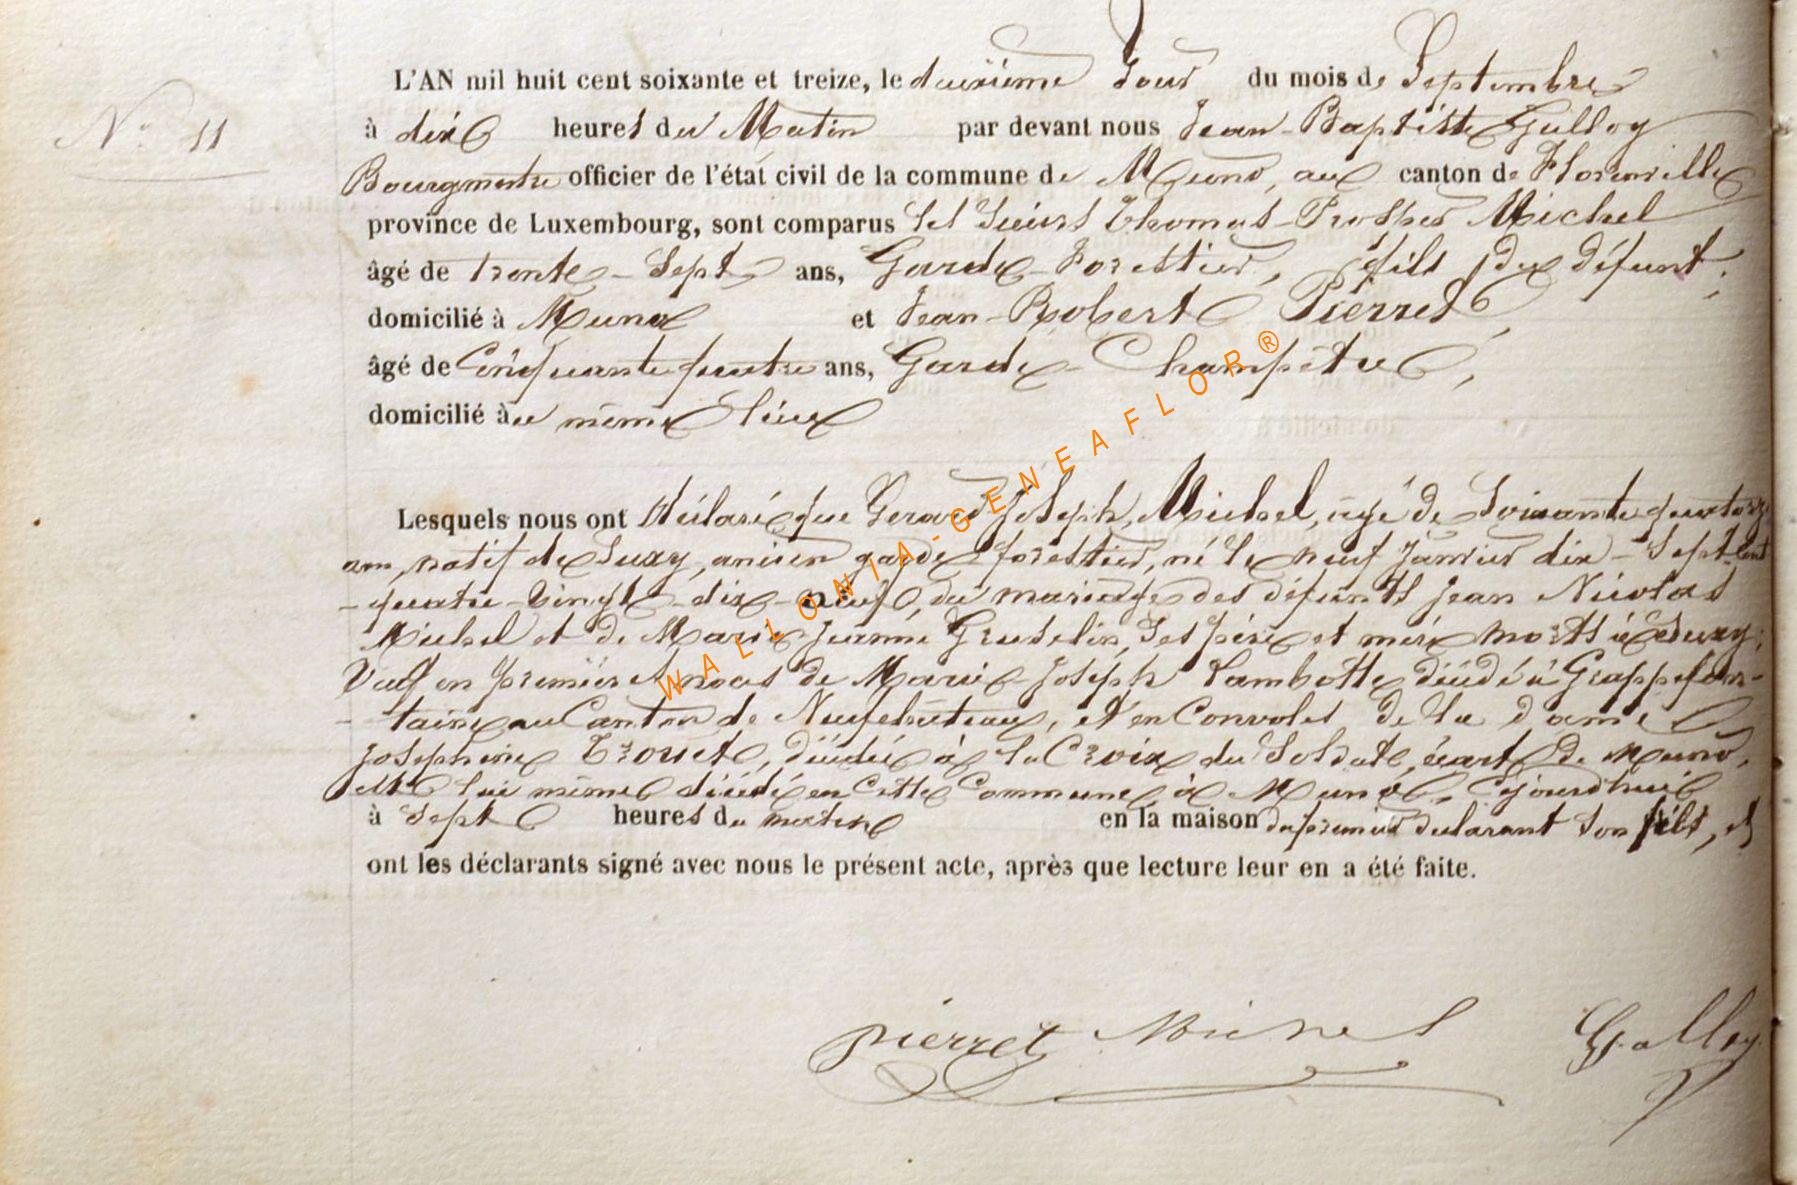 N° 11
L'AN mil huit cent soixante et treize, le deuxième Jour du mois de Septembre
à dix heures du Matin par devant nous Jean-Baptiste Galloy
Bourgmestre officier de l'état civil de la commune de Muno, au canton de Florenville
province de Luxembourg, sont comparus les Sieurs Thomas-Prosper Michel
âgé de trente-Sept ans, Garde-Forestier, fils du défunt,
domicilié à Muno et Jean-Robert Pierret,
âgé de Cinquante quatre ans, Garde-Champêtre,
domicilié au même lieu
Lesquels nous ont déclaré que Gerard Joseph Michel, agé de Soixante quatorze
ans, natif de Suxy, ancien garde forestier, né le neuf Janvier dix-Sept-cent
-quatre-Vingt-dix-neuf, du mariage des défunts Jean Nicolas
Michel et de Marie Jeanne Gruselin, Ses père et mère morts à Suxy;
Veuf en premières noces de Marie-Joseph Lambotte, décédé à Grappefon-
-taine au Canton de Neufchateau, et en Convoles de la dame
Josephine Trouet, décédée à la Croix du Soldat, écart de Muno,
est lui même décédé en Cette Commune, à Muno, Cejourd'hui
à Sept heures du matin en la maison du premier déclarant son fils, et
ont les déclarants signé avec nous le présent acte, après que lecture leur en a été faite.
pierret Michel Galloy
WALLONIA-GENEAFLOR®